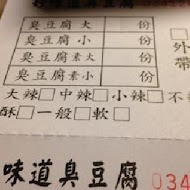 臭豆腐 大 份
臭豆腐 小 份
臭豆腐素大 份
臭豆腐素小 份
外
帶
大辣□中辣□小辣□不
酥□一般□軟□
味道臭豆腐 034